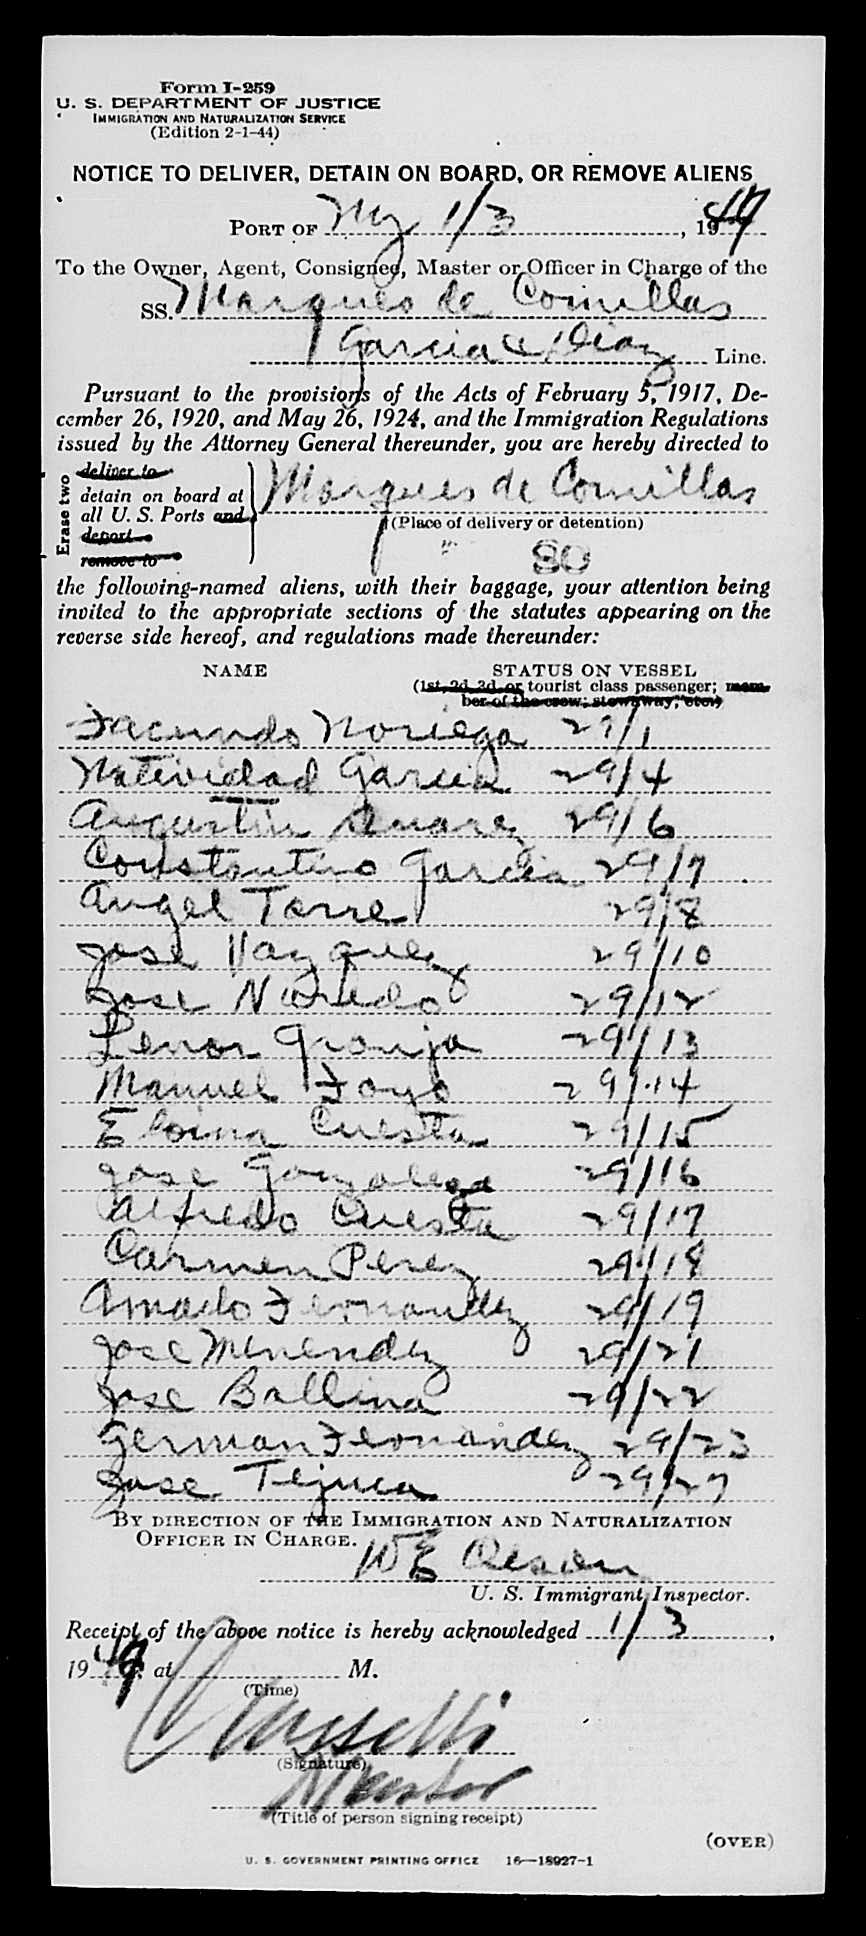 Form I-259
U. S. DEPARTMENT OF JUSTICE
IMMIGRATION AND NATURALIZATION SERVICE
(Edition 2-1-44)
NOTICE TO DELIVER, DETAIN ON BOARD, OR REMOVE ALIENS
PORT OF Ny 1/3, 1949
To the Owner, Agent, Consignee, Master or Officer in Charge of the
SS. Marques de Comillas
Garcia & Diaz Line.
Pursuant to the provisions of the Acts of February 5, 1917, De-
cember 26, 1920, and May 26, 1924, and the Immigration Regulations
issued by the Attorney General thereunder, you are hereby directed to
Erase two
deliver to
detain on board at
all U. S. Ports and
deport
remove to
Marques de Comillas
(Place of delivery or detention)
80
the following-named aliens, with their baggage, your attention being
invited to the appropriate sections of the statutes appearing on the
reverse side hereof, and regulations made thereunder:
NAME STATUS ON VESSEL
(1st, 2d, 3d, or tourist class passenger; mem-
ber of the crew; stowaway; etc.)
Facundo Noriega 29/1
Natividad Garcia 29/4
Augustin Suarez 29/6
Constantino Garcia 29/7
Angel Torre 29/8
Jose Vazquez 29/10
Jose Noredo 29/12
Lenor Granja 29/13
Manuel Foyo 29/14
Eloina Cuesta 29/15
Jose Gonzalez 29/16
Alfredo Cuesta 29/17
Carmen Perez 29/18
Amado Fernandez 29/19
Jose Menendez 29/21
Jose Ballina 29/22
German Fernandez 29/23
Jose Tejuca 29/27
BY DIRECTION OF THE IMMIGRATION AND NATURALIZATION
OFFICER IN CHARGE.
WE Olson
U. S. Immigrant Inspector.
Receipt of the above notice is hereby acknowledged 1/3,
1949, at M.
(Time)
(Signature)
Master
(Title of person signing receipt)
(OVER)
U. S. GOVERNMENT PRINTING OFFICE 16—18927-1